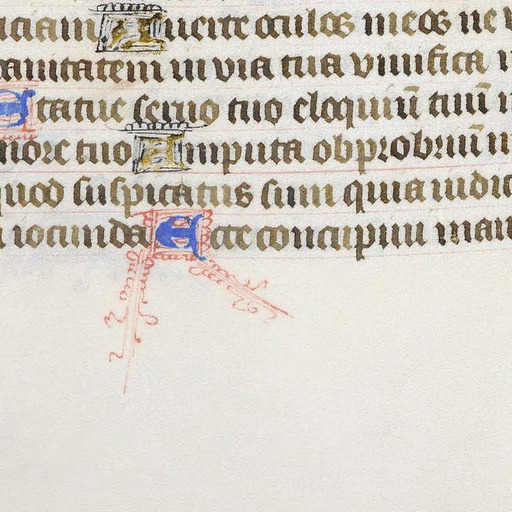 Auerte oculos meos ne
uanitatem in uia tua uiuifica
Statue seruo tuo eloquiū tuū
more tuo Amputa obprobriū
quod suspicatus sum quia iudic
iocunda Ecce concupiui man